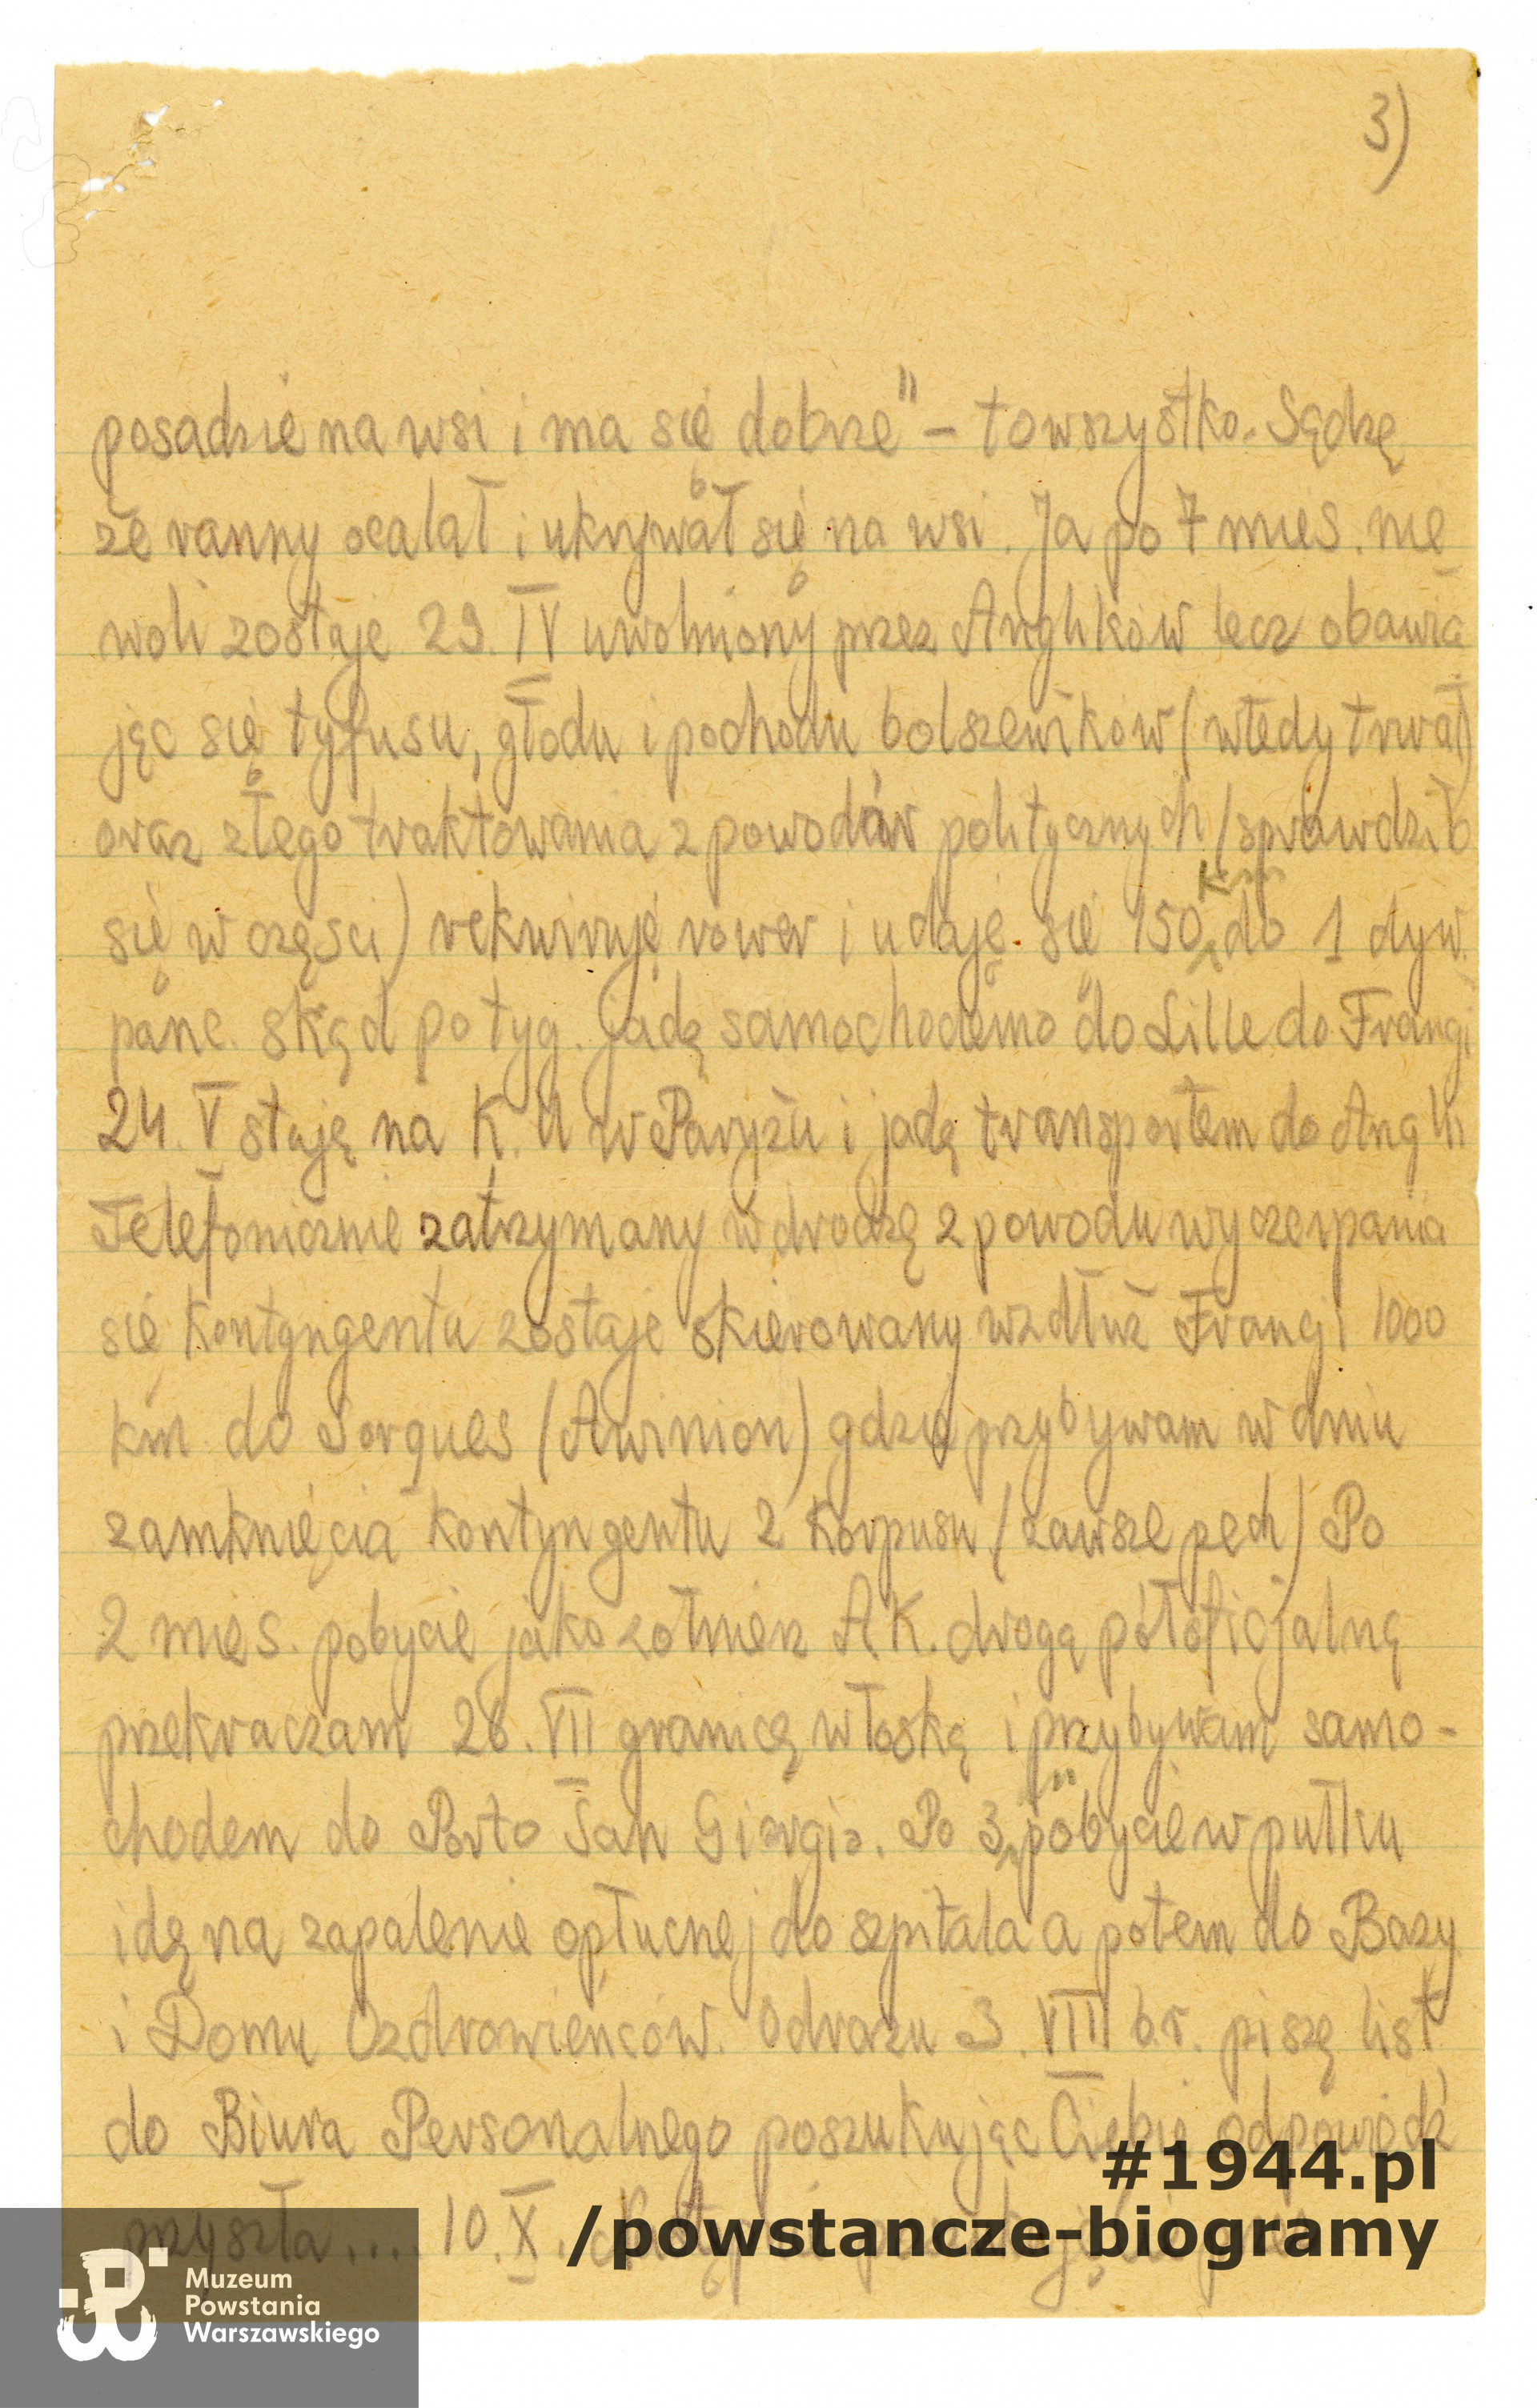 3)
posadzie na wsi i ma się dobrze" – to wszystko. Sądzę
że ranny ocalał i ukrywał się na wsi. Ja po 7 mies. nie
woli zostaję 29. IV uwolniony przez Anglików lecz obawia
jąc się tyfusu, głodu i pochodu bolszewików (wtedy trwał)
oraz złego traktowania z powodów politycznych (sprawdziło
się w części) rekwiruję rower i udaję się 150 km do 1 dyw.
panc. skąd po tyg. jadę samochodem do Lille do Francji
24. V staję na K. U w Paryżu i jadę transportem do Anglii
Telefonicznie zatrzymany w drodze z powodu wyczerpania
się kontyngentu zostaję skierowany wzdłuż Francji 1000
km do Sorgues (Awinion) gdzie przybywam w dniu
zamknięcia kontyngentu 2 Korpusu (zawsze pech) Po
2 mies. pobycie jako żołnierz A.K. drogą półoficjalną
przekraczam 26. VII granicę włoską i przybywam samo-
chodem do Porto San Giorgio. Po 3 pobycie w pułku
idę na zapalenie opłucnej do szpitala a potem do Bazy
i Domu Ozdrowieńców. Odrazu 3. VIII b.r. piszę list
do Biura Personalnego poszukując Ciebie odpowiedź
przyszła .... 10. X.
#1944.pl
/powstancze-biogramy
Muzeum
Powstania
Warszawskiego